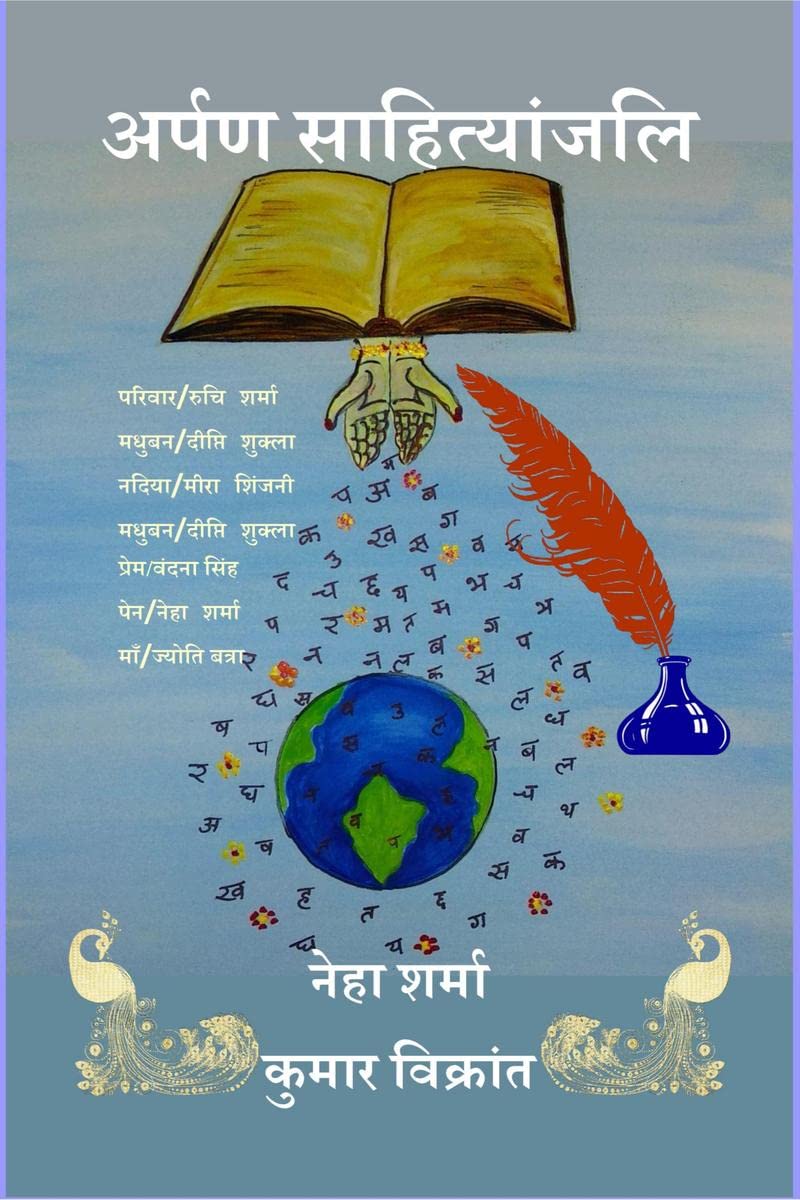 अर्पण साहित्यांजलि
परिवार/रुचि शर्मा
मधुबन/दीप्ति शुक्ला
नदिया/मीरा शिंजनी
मधुबन/दीप्ति शुक्ला
प्रेम/वंदना सिंह
पेन/नेहा शर्मा
माँ/ज्योति बत्रा
नेहा शर्मा
कुमार विक्रांत